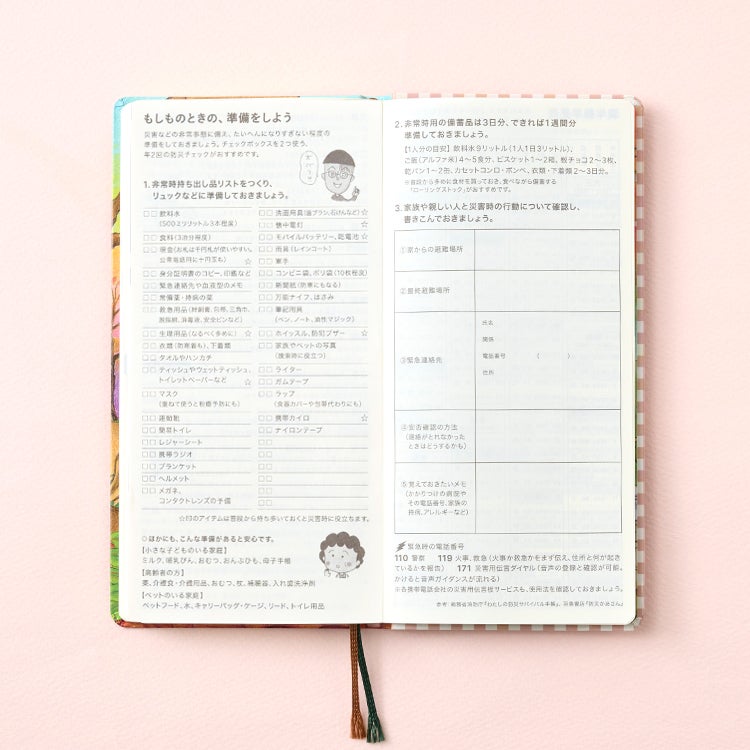 もしものときの、準備をしよう
災害などの非常事態に備え、たいへんになりすぎない程度の
準備をしておきましょう。チェックボックスを2つ使う、
年2回の防災チェックがおすすめです。
1.非常時持ち出し品リストをつくり、
リュックなどに準備しておきましょう。
□□飲料水
(500ミリリットル3本程度)
□□食料(3泊分程度)
□□現金(お札は千円札が使いやすい。
公衆電話用に十円玉も) ☆
□□身分証明書のコピー、印鑑など
□□緊急連絡先や血液型のメモ
□□常備薬・持病の薬
□□救急用品(絆創膏、包帯、三角巾、
脱脂綿、消毒液、安全ピンなど)
□□生理用品(なるべく多めに) ☆
□□衣類(防寒着も)、下着類
□□タオルやハンカチ
□□ティッシュやウェットティッシュ、
トイレットペーパーなど ☆
□□マスク
(重ねて使うと粉塵予防にも)
□□運動靴
□□簡易トイレ
□□レジャーシート
□□携帯ラジオ
□□ブランケット
□□ヘルメット
□□メガネ、
コンタクトレンズの予備
□□洗面用具(歯ブラシ、石けんなど) ☆
□□懐中電灯 ☆
□□モバイルバッテリー、乾電池 ☆
□□雨具(レインコート)
□□軍手
□□コンビニ袋、ポリ袋(10枚程度)
□□新聞紙(防寒にもなる)
□□万能ナイフ、はさみ
□□筆記用具
(ペン、ノート、油性マジック)
□□ホイッスル、防犯ブザー ☆
□□家族やペットの写真
(捜索時に役立つ)
□□ライター
□□ガムテープ
□□ラップ
(食器カバーや包帯代わりにも)
□□携帯カイロ ☆
□□ナイロンテープ
□□
□□
□□
□□
□□
□□
☆印のアイテムは普段から持ち歩いておくと災害時に役立ちます。
○ほかにも、こんな準備があると安心です。
【小さな子どものいる家庭】
ミルク、哺乳びん、おむつ、おんぶひも、母子手帳
【高齢者の方】
薬、介護食・介護用品、おむつ、杖、補聴器、入れ歯洗浄剤
【ペットのいる家庭】
ペットフード、水、キャリーバッグ・ケージ、リード、トイレ用品
2.非常時用の備蓄品は3日分、できれば1週間分
準備しておきましょう。
【1人分の目安】飲料水9リットル(1人1日3リットル)、
ご飯(アルファ米)4〜5食分、ビスケット1〜2箱、板チョコ2〜3枚、
乾パン1〜2缶、カセットコンロ・ボンベ、衣類・下着類2〜3日分。
※普段から多めに食材を買っておき、食べながら備蓄する
「ローリングストック」がおすすめです。
3.家族や親しい人と災害時の行動について確認し、
書きこんでおきましょう。
①家からの避難場所
②最終避難場所
③緊急連絡先
氏名
関係
電話番号 ( )
住所
④安否確認の方法
(連絡がとれなかった
ときはどうするかも)
⑤覚えておきたいメモ
(かかりつけの病院や
その電話番号、家族の
持病、アレルギーなど)
緊急時の電話番号
110 警察 119 火事、救急(火事か救急かをまず伝え、住所と何が起き
ているかを報告) 171 災害用伝言ダイヤル(音声の登録と確認が可能。
かけると音声ガイダンスが流れる)
※各携帯電話会社の災害用伝言板サービスも、使用法を確認しておきましょう。
参考:総務省消防庁『わたしの防災サバイバル手帳』、羽鳥書店『防災かあさん』